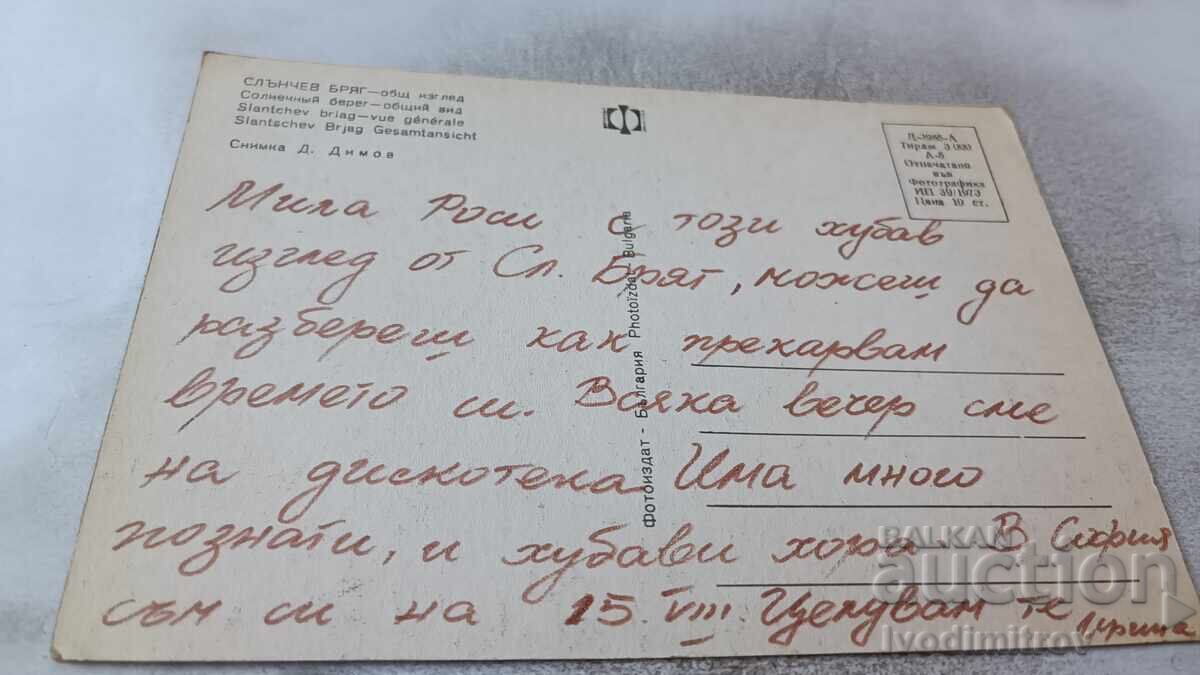 СЛЪНЧЕВ БРЯГ — общ изглед
Солнечный берег — общий вид
Slantchev briag — vue générale
Slantschev Brjag Gesamtansicht
Снимка Д. Димов
Д-1988-А
Тираж 3 000
А-8
Отпечатано
във
Фотографика
ИП 39/1973
Цена 10 ст.
Мила Роси с този хубав
изглед от Сл. Бряг, можеш да
разбереш как прекарвам
времето си. Всяка вечер сме
на дискотека Има много
познати, и хубави хора. В София
съм си на 15. VIII. Целувам те
Фотоиздат - България Photoizdat - Bulgaria
BALKAN
auction
Ivodimitrov